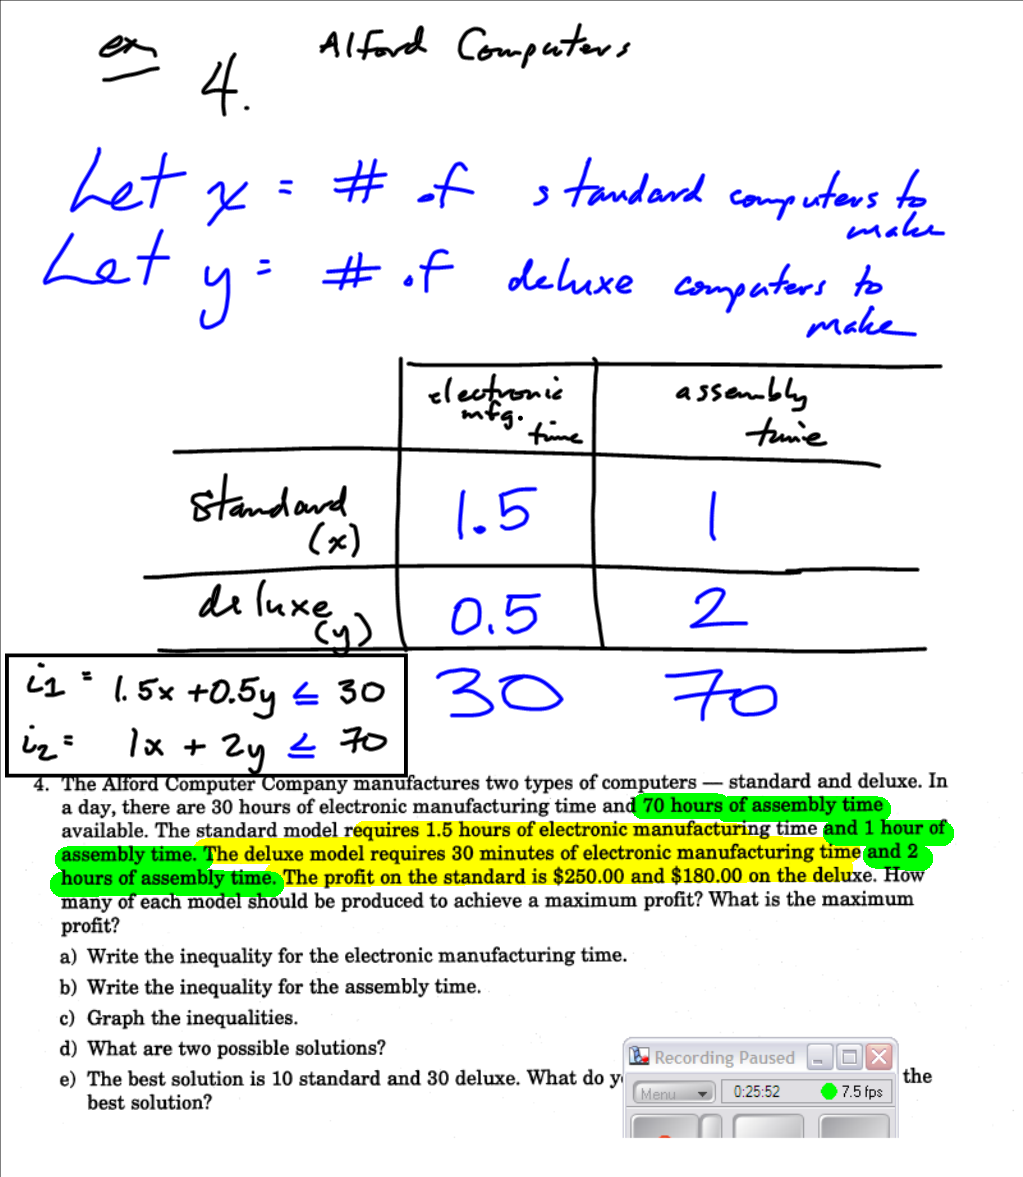 ex
4.
Alford Computers
Let x = # of standard computers to
make
Let y = # of deluxe computers to
make
electronic
mfg.
time
assembly
time
standard
(x)
1.5
1
deluxe
(y)
0.5
2
30
70
i1 = 1.5x + 0.5y ≤ 30
i2 = 1x + 2y ≤ 70
4. The Alford Computer Company manufactures two types of computers — standard and deluxe. In
a day, there are 30 hours of electronic manufacturing time and 70 hours of assembly time
available. The standard model requires 1.5 hours of electronic manufacturing time and 1 hour of
assembly time. The deluxe model requires 30 minutes of electronic manufacturing time and 2
hours of assembly time. The profit on the standard is $250.00 and $180.00 on the deluxe. How
many of each model should be produced to achieve a maximum profit? What is the maximum
profit?
a) Write the inequality for the electronic manufacturing time.
b) Write the inequality for the assembly time.
c) Graph the inequalities.
d) What are two possible solutions?
e) The best solution is 10 standard and 30 deluxe. What do y the
best solution?
Recording Paused
Menu
0:25:52
7.5 fps